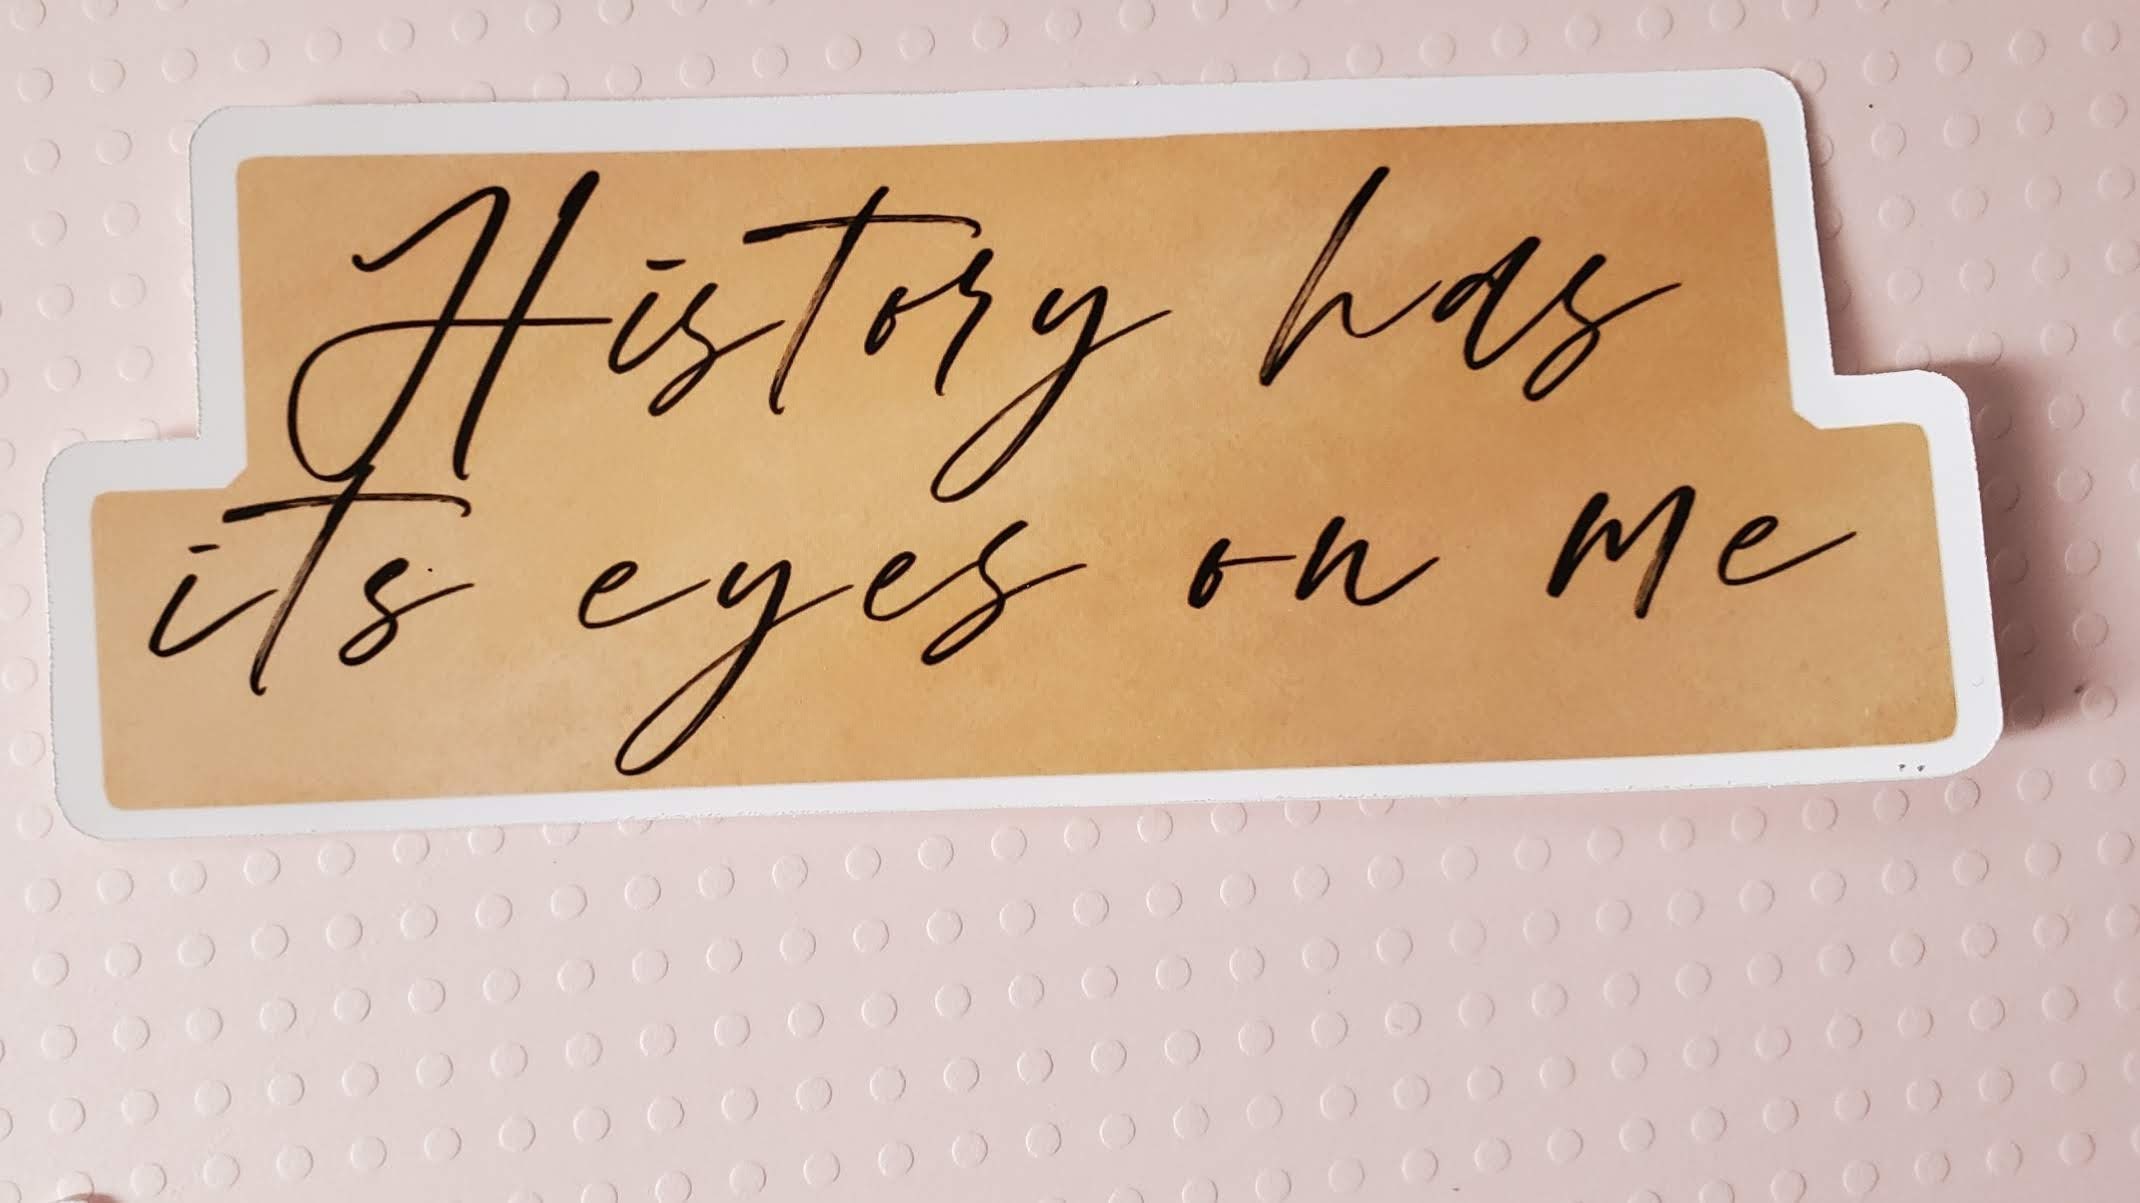 History has
its eyes on me